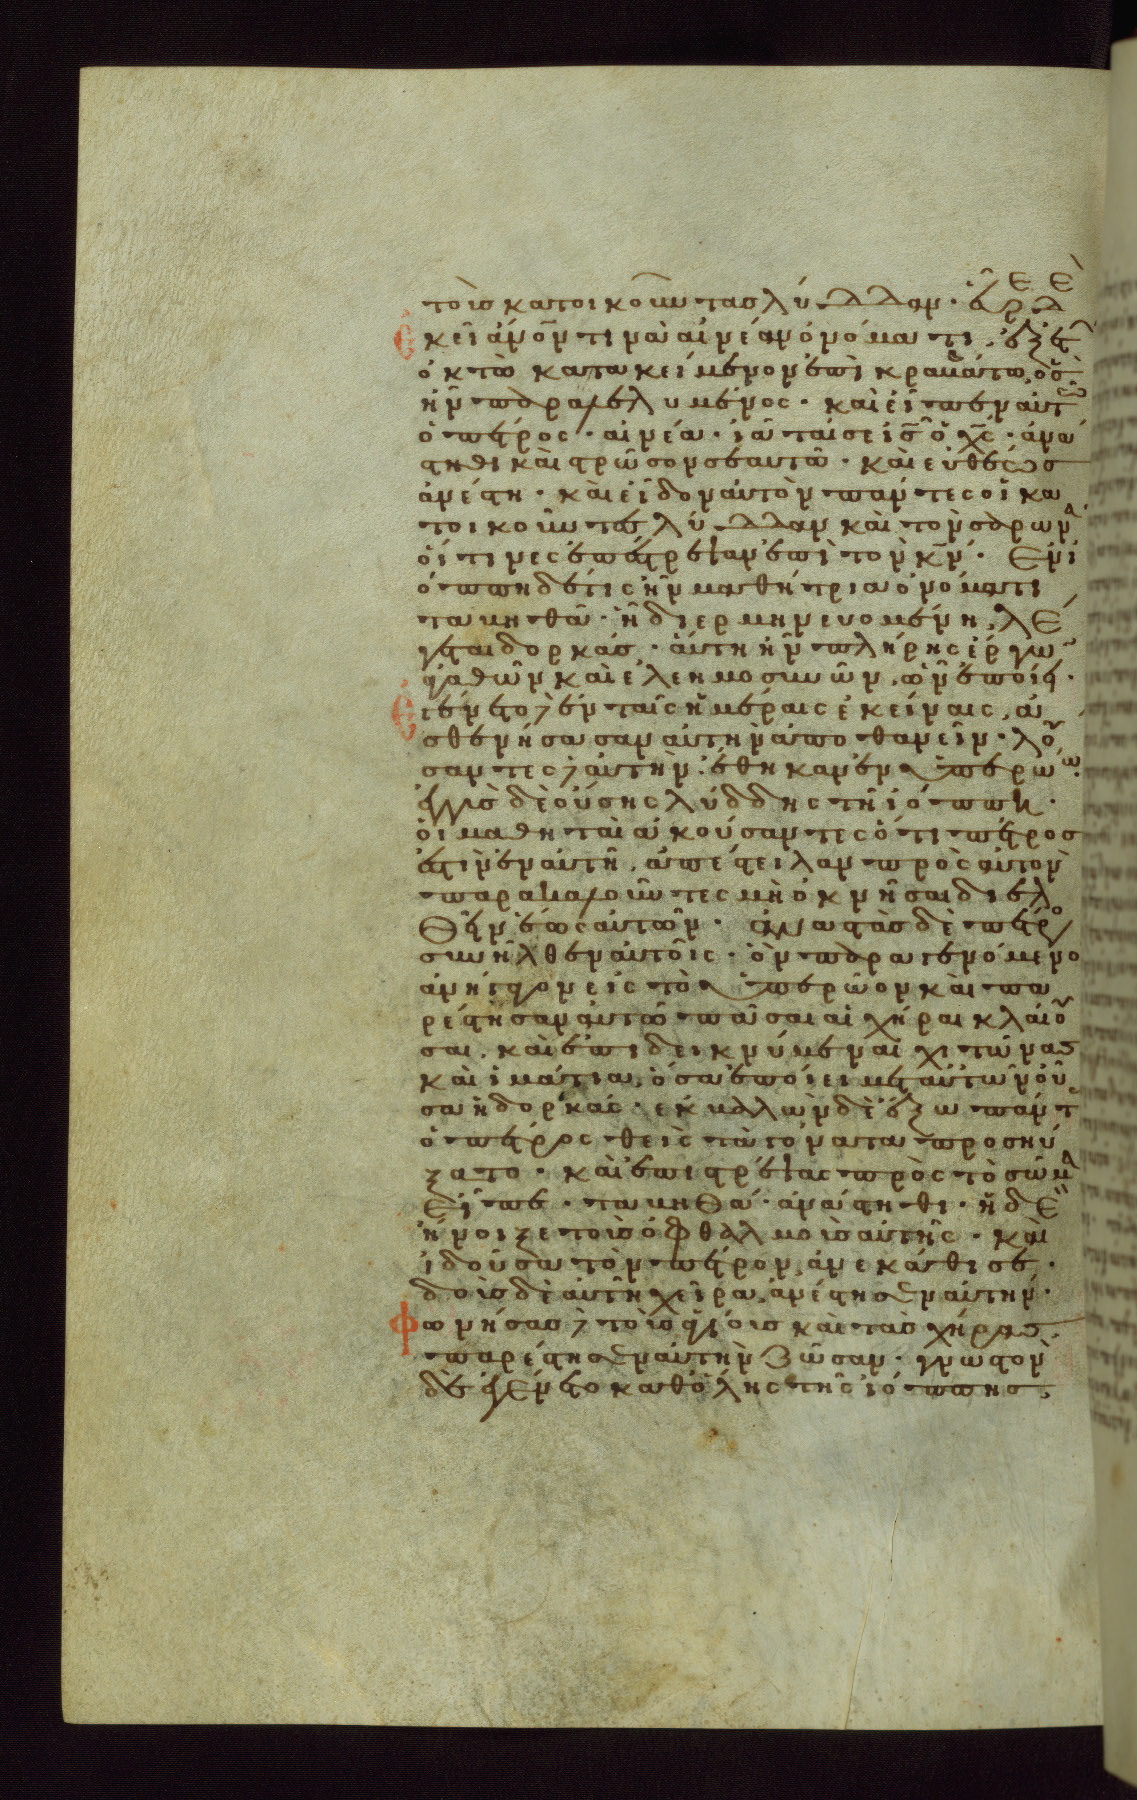 τοὺς κατοικοῦντας λύδδαν· εὗρε δὲ
ἐκεῖ ἄνόν τινα αἰνέαν ὀνόματι, ἐξ ἐτῶ
ὀκτὼ κατακείμενον ἐπὶ κραβάττω, ὃς
ἦν παραλελυμένος· καὶ εἶπεν αὐτῶ
ὁ πέτρος· αἰνέα· ἰᾶταί σε ις ὁ χς· ἀνά
στηθι καὶ στρῶσον σεαυτῶ· καὶ εὐθέως
ἀνέστη· καὶ εἶδον αὐτὸν πάντες οἱ κα
τοικοῦντες λύδδαν καὶ τὸν σάρωνα
οἵτινες ἐπέστρεψαν ἐπὶ τὸν κν· Ἐν ἰ
όππη δέ τις ἦν μαθήτρια ὀνόματι
ταμηθά· ἣ διερμηνευομένη, λέ
γεται δορκάς· αὕτη ἦν πλήρης ἔργων
ἀγαθῶν καὶ ἐλεημοσυνῶν, ὧν ἐποίει·
Ἐγένετο δὲ ἐν ταῖς ἡμέραις ἐκείναις, ἀ
σθενήσασαν αὐτὴν ἀποθανεῖν· λού
σαντες δὲ αὐτὴν ἔθηκαν ἐν ὑπερώω·
ἐγγὺς δὲ οὔσης λύδδης τῆ ἰόππη·
οἱ μαθηταὶ ἀκούσαντες ὅτι πέτρος
ἐστὶν ἐν αὐτῆ, ἀπέστειλαν πρὸς αὐτὸν
παρακαλοῦντες μὴ ὀκνῆσαι διελ
θεῖν ἕως αὐτῶν· ἀναστὰς δὲ πέτρος
συνῆλθεν αὐτοῖς· ὃν παραγενόμενο
ἀνήγαγον εἰς τὸ ὑπερῶον καὶ πα
ρέστησαν αὐτῶ πᾶσαι αἱ χῆραι κλαίου
σαι, καὶ ἐπιδεικνύμεναι χιτῶνας
καὶ ἱμάτια, ὅσα ἐποίει μετ αὐτῶν οὖ
σα ἡ δορκάς· ἐκβαλὼν δὲ ἔξω πάντας
ὁ πέτρος θεὶς τὰ γόνατα προσηύ
ξατο· καὶ ἐπιστρέψας πρὸς τὸ σῶμα
εἶπε· ταμηθά· ἀνάστηθι· ἡ δὲ
ἤνοιξε τοὺς ὀφθαλμοὺς αὐτῆς· καὶ
ἰδοῦσα τὸν πέτρον, ἀνεκάθισε·
δοὺς δὲ αὐτῆ χεῖρα, ἀνέστησεν αὐτήν·
Φωνήσας δὲ τοὺς ἁγίους καὶ τὰς χήρας,
παρέστησεν αὐτὴν ζῶσαν· γνωστὸν
δὲ ἐγένετο καθόλης τῆς ἰόππης,